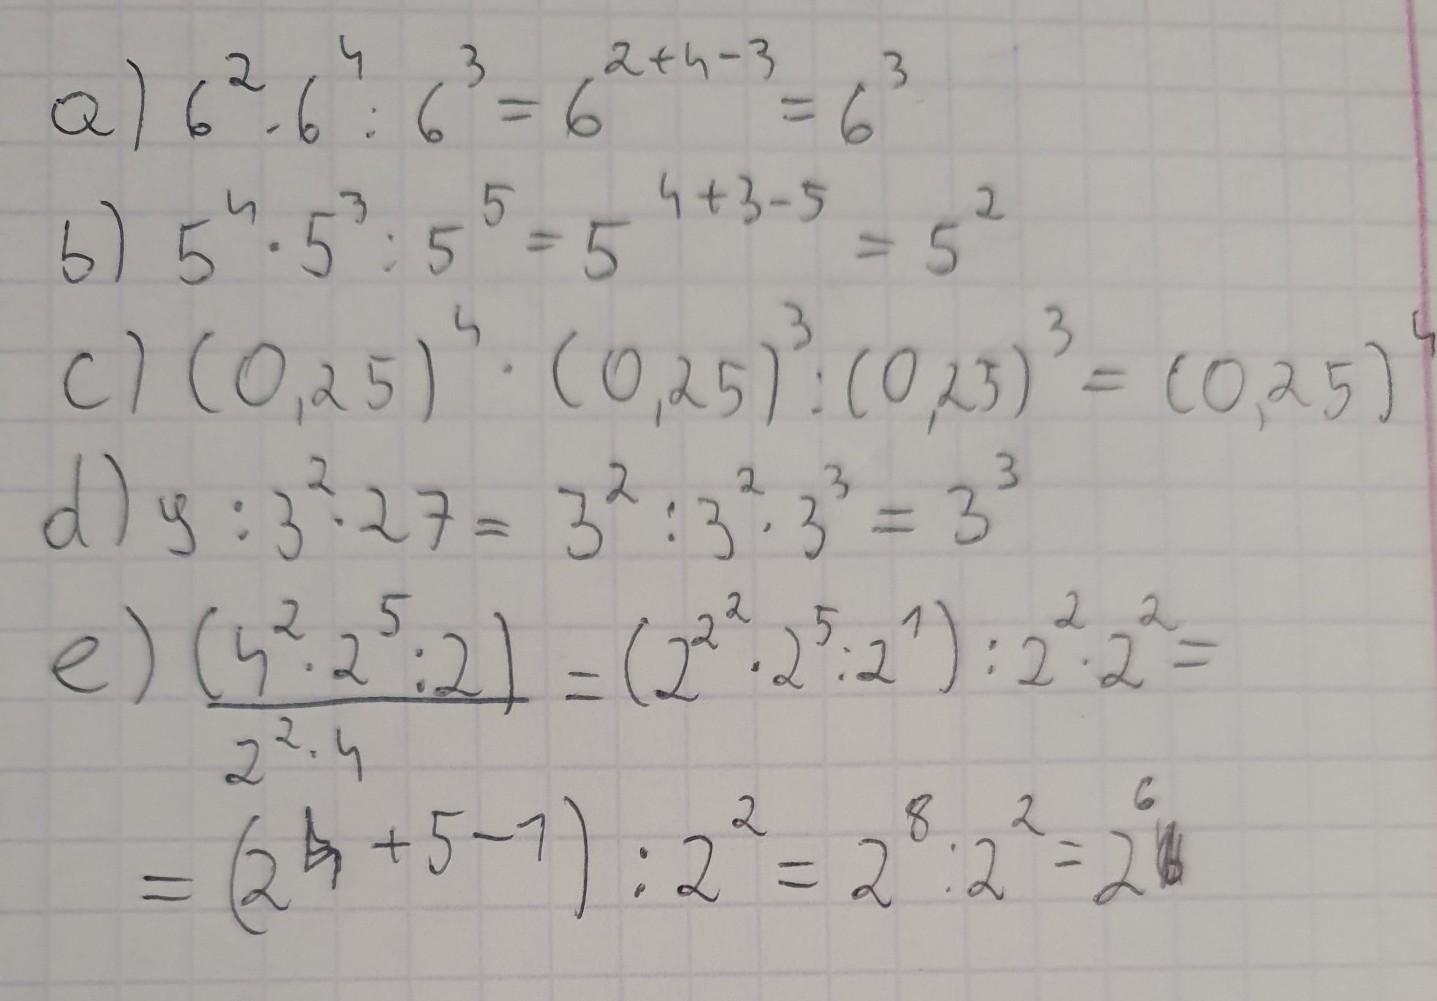 a) 6² · 6⁴ : 6³ = 6²⁺⁴⁻³ = 6³
b) 5⁴ · 5³ : 5⁵ = 5⁴⁺³⁻⁵ = 5²
c) (0,25)⁴ · (0,25)³ : (0,25)³ = (0,25)⁴
d) 9 : 3² · 27 = 3² : 3² · 3³ = 3³
e) (4² · 2⁵ : 2) = (2^2^2 · 2⁵ : 2¹) : 2² · 2² =
2² · 4
= (2⁴⁺⁵⁻¹) : 2² = 2⁸ : 2² = 2⁶